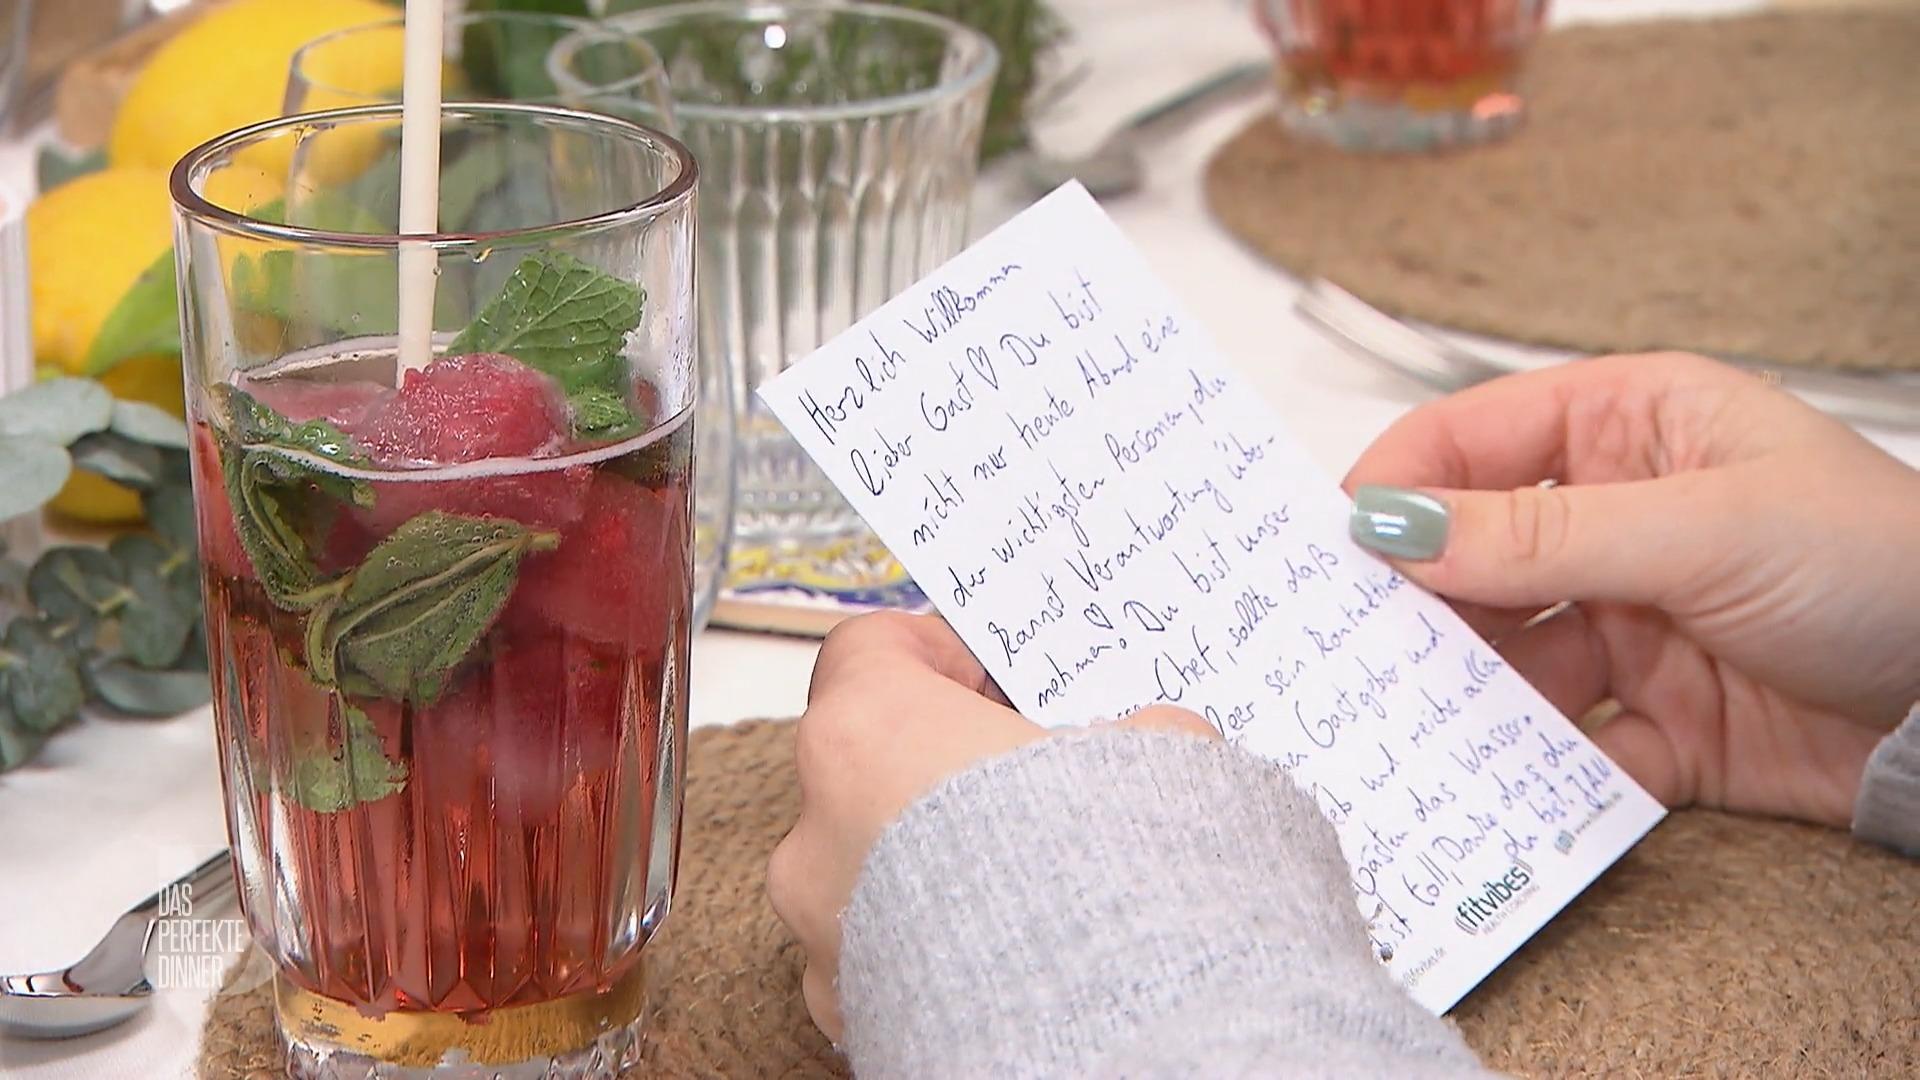 Herzlich Willkommen
lieber Gast ♡ Du bist
nicht nur heute Abend eine
der wichtigsten Personen, du
kannst Verantwortung über-
nehmen ♡ Du bist unser
-Chef, sollte daß
leer sein kontaktier
Gastgeber und
und reiche allen
Gästen das Wasser.
Bist toll, Danke dass du
du bist. JAN
((fitvibes))
HEALTH COACHING
@fitvibes.de
DAS
PERFEKTE
DINNER